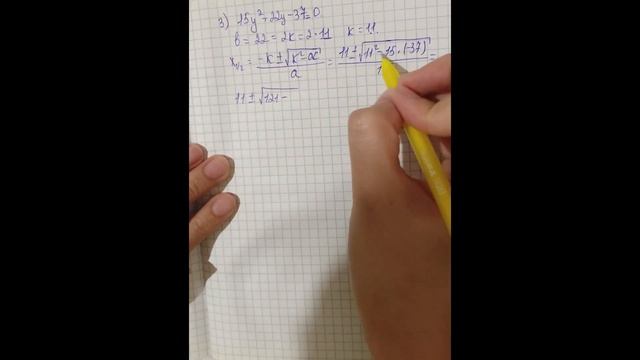 3) 15y²+22y-37=0
b=22=2k=2·11 k=11.
x₁/₂ = (-k±√(k²-ac))/a = (11±√(11²-15·(-37)))/1 =
11±√(121-